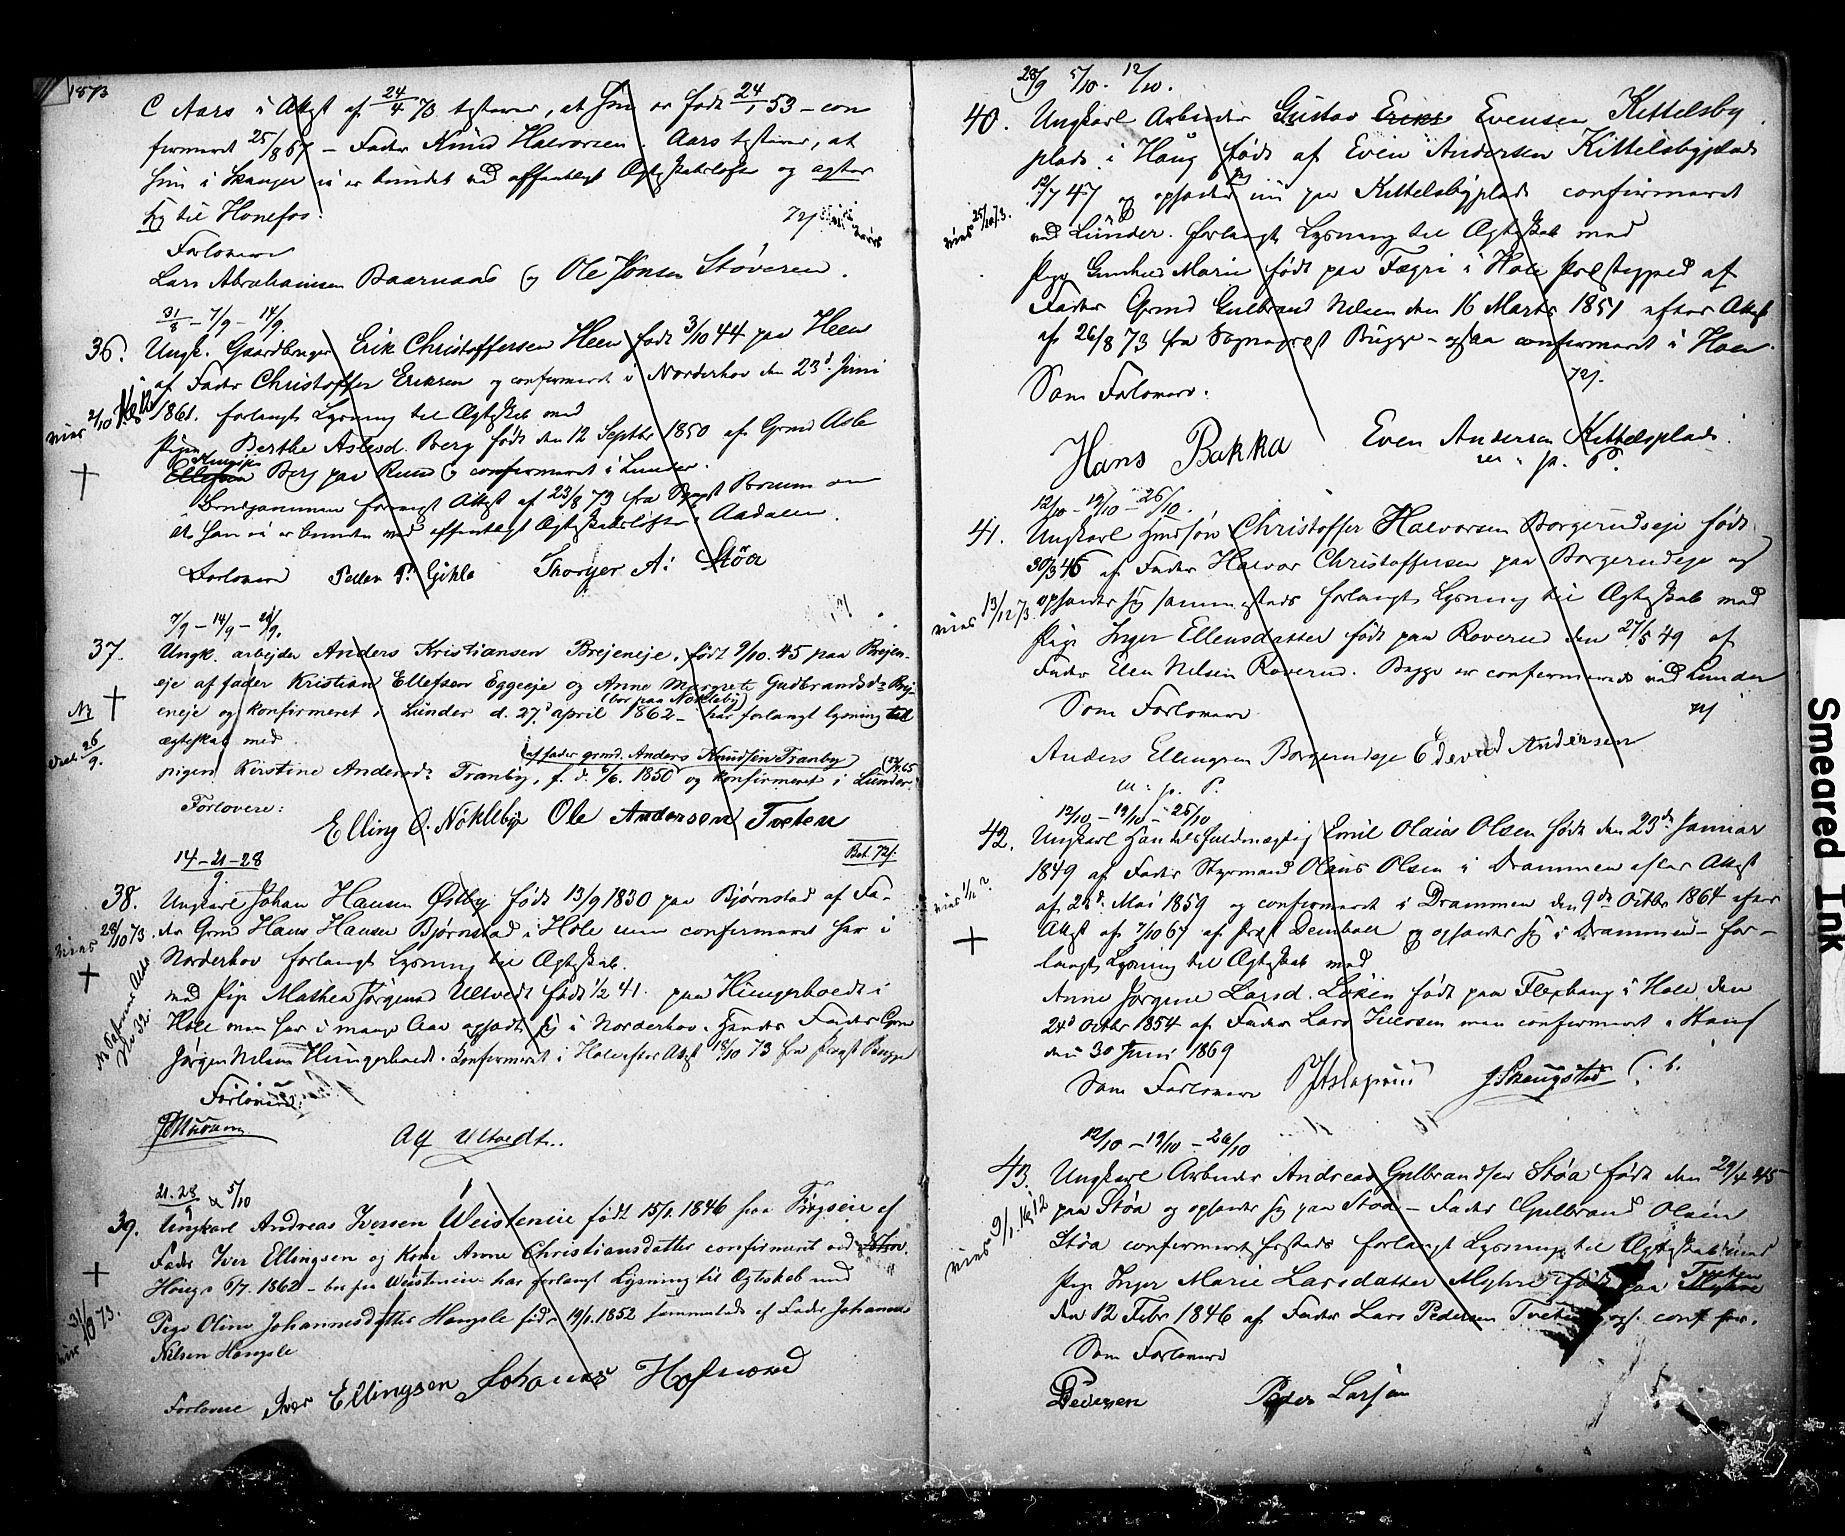 1873
C Aars i Attest af 24/4 73 at hun er født 24/1 53 – con
firmeret 25/8 67 – Fader Knud Halvorsen. Aars at
hun i ei er bundet ved offentligt Ægteskabsløfte og agter
sig til Honefos.
72 s
Forlovere
Lars Abrahamsen Baarnaas og Ole Jonsen Støveren.
31/8 – 7/9 – 14/9.
36. Ungk. Gaardbruger Erik Christoffersen Heen født 3/10 44 paa Heen
af Fader Christoffer Eriksen og confirmeret i Norderhov den 23d Juni
1861. forlangt Lysning til Ægteskab med
Pigen Berthe Aslesd. Berg født den 12 Septbr 1850 af Grmd Asle
Ellefsen Berg paa Rud og confirmeret i Lunder.
Attest af 23/8 73 fra Pgst om
at han ei er bunden ved offentligt Ægteskabsløfte i Aadalen.
Forlovere Peder P. Gihle Thorger A: Stöa
7/9 – 14/9 – 21/9.
37. Ungk. arbejder Anders Kristiansen Brejeneje, født 9/10. 45 paa Brejen-
eje af fader Kristian Ellefsen Eggeeje og Anne Margrete Gudbrandsdr Brej-
(bor paa Nokleby)
eneje og konfirmeret i Lunder d. 27d april 1862 – har forlangt lysning til
ægteskab med
af fader grmd. Anders Knudsen Tranby
pigen Kirstine Andersdr Tranby, f. d. 4/6. 1850 og konfirmeret i Lunder
Forlovere:
Elling O. Nökleby Ole Andersen Tveten
Bet. 72 s.
14 – 21 – 28
9
38. Ungkarl Johan Hansen Østby født 13/9 1830 paa Bjørnstad af Fa-
der Grmd Hans Hansen Bjørnstad i Hole men confirmeret her i
Norderhov forlangt Lysning til Ægteskab.
med Pige Mathea Jørgensd Ultvedt født 1/2 41. paa Hungerholdt i
Hole men har i mange Aar opholdt sig i Norderhov. Hendes Fader Grmd
Jørgen Nilsen Hungerholdt. Confirmeret i Hole efter Attest 18/10 73 fra Præst Bugge
Forlovere:
A Ultvedt.
21. 28/9 & 5/10
39. Ungkarl Andreas Iversen Weisteneie født 15/1. 1846 paa af
Fader Iver Ellingsen og Kone Anne Christiansdatter confirmeret ved
Houg 6/7. 1862 – bor paa Weisteneie har forlangt Lysning til Ægteskab med
Pige Oline Johannesdatter Hougsle født 19/1. 1852 sammesteds af Fader Johannes
Nilsen Hougsle
Forlovere Iver Ellingsen Johanes Hofsrud
28/9 5/10. 12/10.
40. Ungkarl Arbeider Gustav Eriks Evensen Kittelsby
plads i Houg født af Even Andersen Kittelsbyplads
12/7 47 og opholder sig nu paa Kittelsbyplads confirmeret
ved Lunder. forlangt Lysning til Ægteskab med
Pige Gunhild Marie født paa Fægri i Hole Præstegjeld af
Fader Grmd Gulbrand Nilsen den 16 Marts 1851 efter Attest
af 26/8 73 fra Sognepræst Bugge – ogsaa confirmeret i Hole.
72 s.
Som Forlovere.
Hans Bakka Even Andersen Kittelsplads.
m. p. P.
12/10 – 19/10 – 26/10.
41. Ungkarl Christoffer Halvorsen Borgerudseje født
30/3 46 af Fader Halvor Christoffersen paa Borgerudeje og
opholder sig sammesteds forlangt Lysning til Ægteskab med
Pige Inger Ellensdatter født paa Roverud den 27/5 49 af
Fader Elen Nilsen Roverud. Begge er confirmerede ved Lunder
Som Forlovere
72 s
Anders Ellingsen Borgerudeje Edevard Andersen
m. p. P.
12/10 – 19/10 – 26/10
42. Ungkarl Handelsfuldmægtig Emil Olaus Olsen født den 23de Januar
1849 af Fader Styrmand Olaus Olsen i Drammen efter Attest
af 28d Mai 1859 og confirmeret i Drammen den 9de Octbr 1864 efter
Attest af 7/10 67 af Præst og opholder sig i Drammen – for-
langt Lysning til Ægteskab med
Anne Jørgine Larsd. Löken født paa i Hole den
24d Octbr 1854 af Fader Lars Iversen men confirmeret i Houg
den 30 Juni 1869
Som Forlovere J. Skougstad
12/10 – 19/10 – 26/10
43. Ungkarl Arbeider Andreas Gulbrandsen Støa født den 29/4 45
paa Støa og opholder sig paa Støa – Fader Gulbrand Olsen
Støa confirmeret forlangt Lysning til Ægteskab med
Pige Inger Marie Larsdatter Myhre født paa Tveten
den 12 Febr 1846 af Fader Lars Pedersen Tveten, conf her.
Som Forlovere
Pedersen Peder Larsen
Smeared Ink